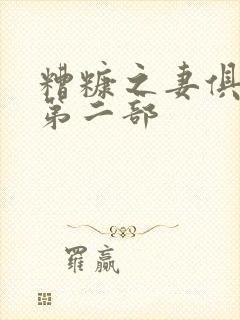 糟糠之妻俱
第二部
羅贏